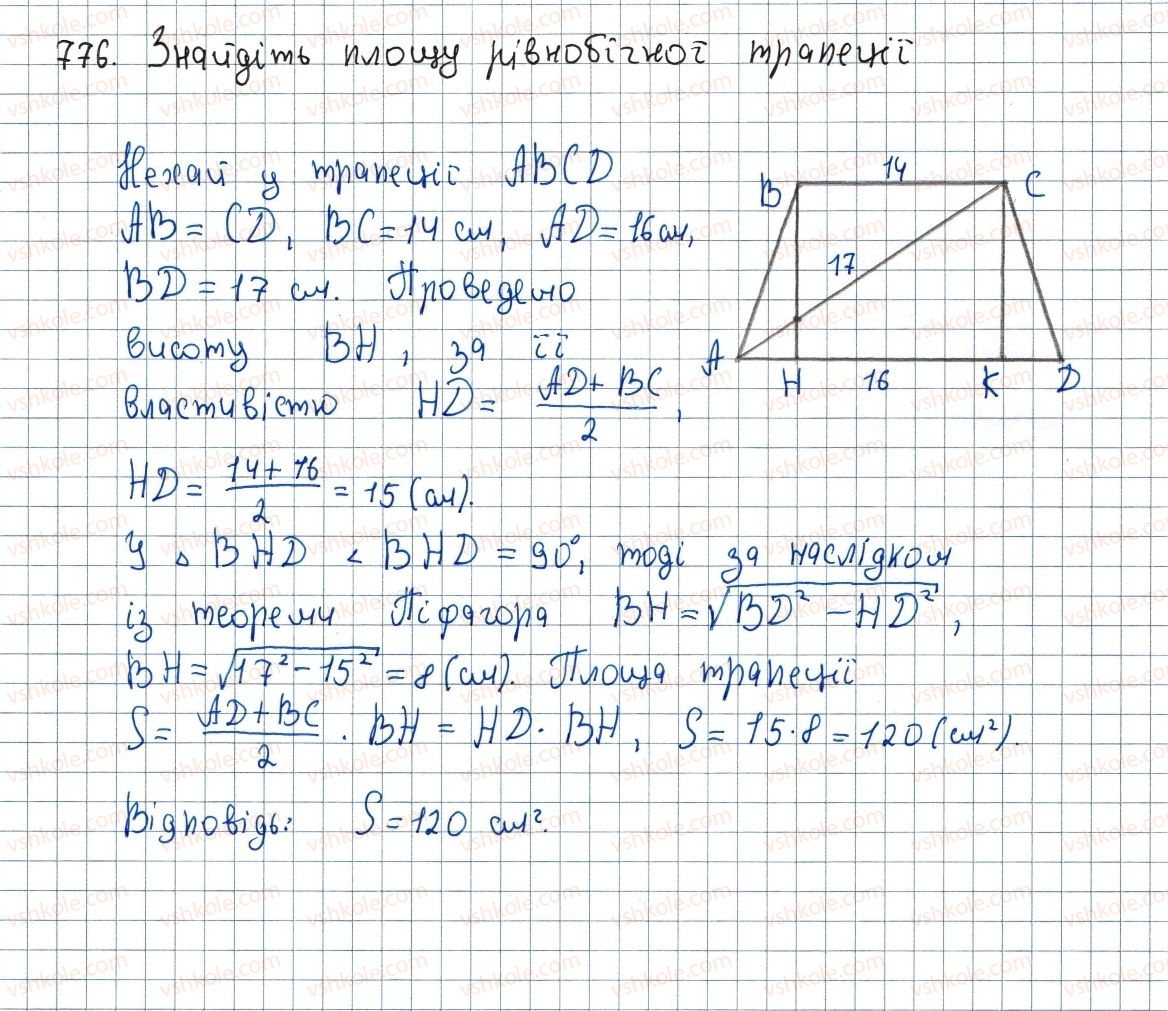 776. Знайдіть площу рівнобічної трапеції
Нехай у трапеції ABCD
AB = CD, BC = 14 см, AD = 16 см,
BD = 17 см. Проведемо
висоту BH, за її
властивістю HD = (AD + BC)/2,
HD = (14 + 16)/2 = 15 (см).
У △ BHD ∠ BHD = 90°, тоді за наслідком
із теореми Піфагора BH = √(BD² − HD²),
BH = √(17² − 15²) = 8 (см). Площа трапеції
S = (AD + BC)/2 · BH = HD · BH, S = 15 · 8 = 120 (см²).
Відповідь: S = 120 см².
14
B C
17
A H 16 K D
vshkole.com